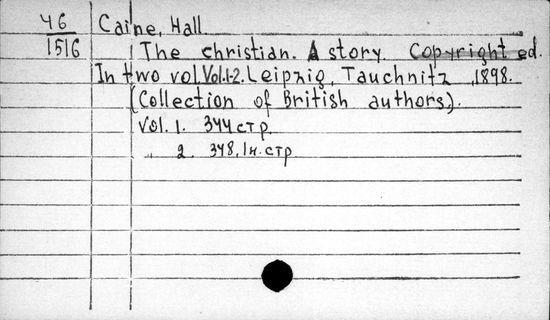 46 Caine, Hall
1516 The christian. A story. Copyright ed.
In two vol. Vol.1-2. Leipzig, Tauchnitz, 1898.
(Collection of British authors).
Vol. 1. 344 стр.
„ 2. 348, 1н. стр.